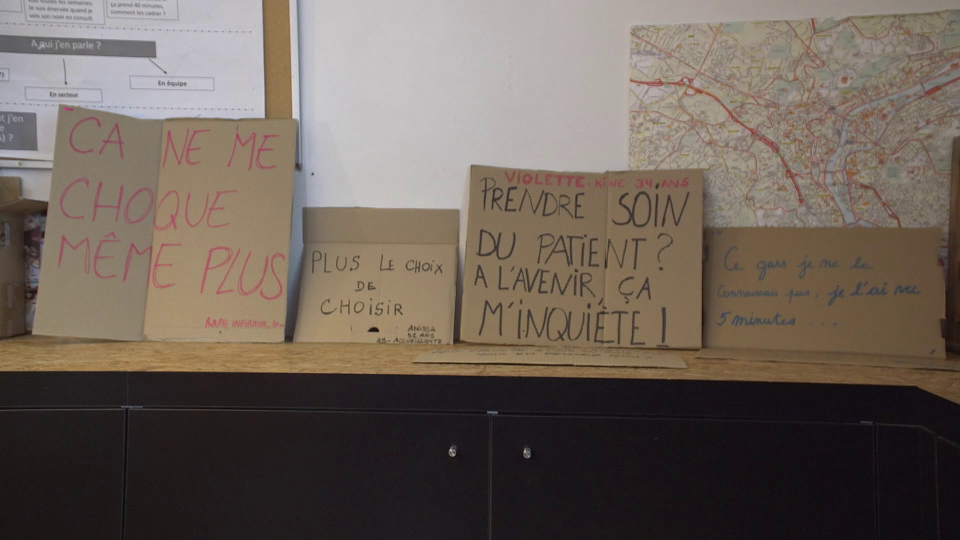 vois toutes les semaines.
Je suis énervée quand je
vois son nom en consult.
ça prend 40 minutes.
Comment les cadrer ?
A qui j'en parle ?
En secteur
En équipe
t j'en
ÇA NE ME
CHOQUE
MÊME PLUS
RAPH, INFIRMIER,
PLUS LE CHOIX
DE
CHOISIR
ANISSA
52 ANS
ACCUEILLANTE
VIOLETTE · KINÉ · 34 ANS
PRENDRE SOIN
DU PATIENT ?
A L'AVENIR, ÇA
M'INQUIÈTE !
Ce gars je ne le
connaissais pas, je l'ai vu
5 minutes ...